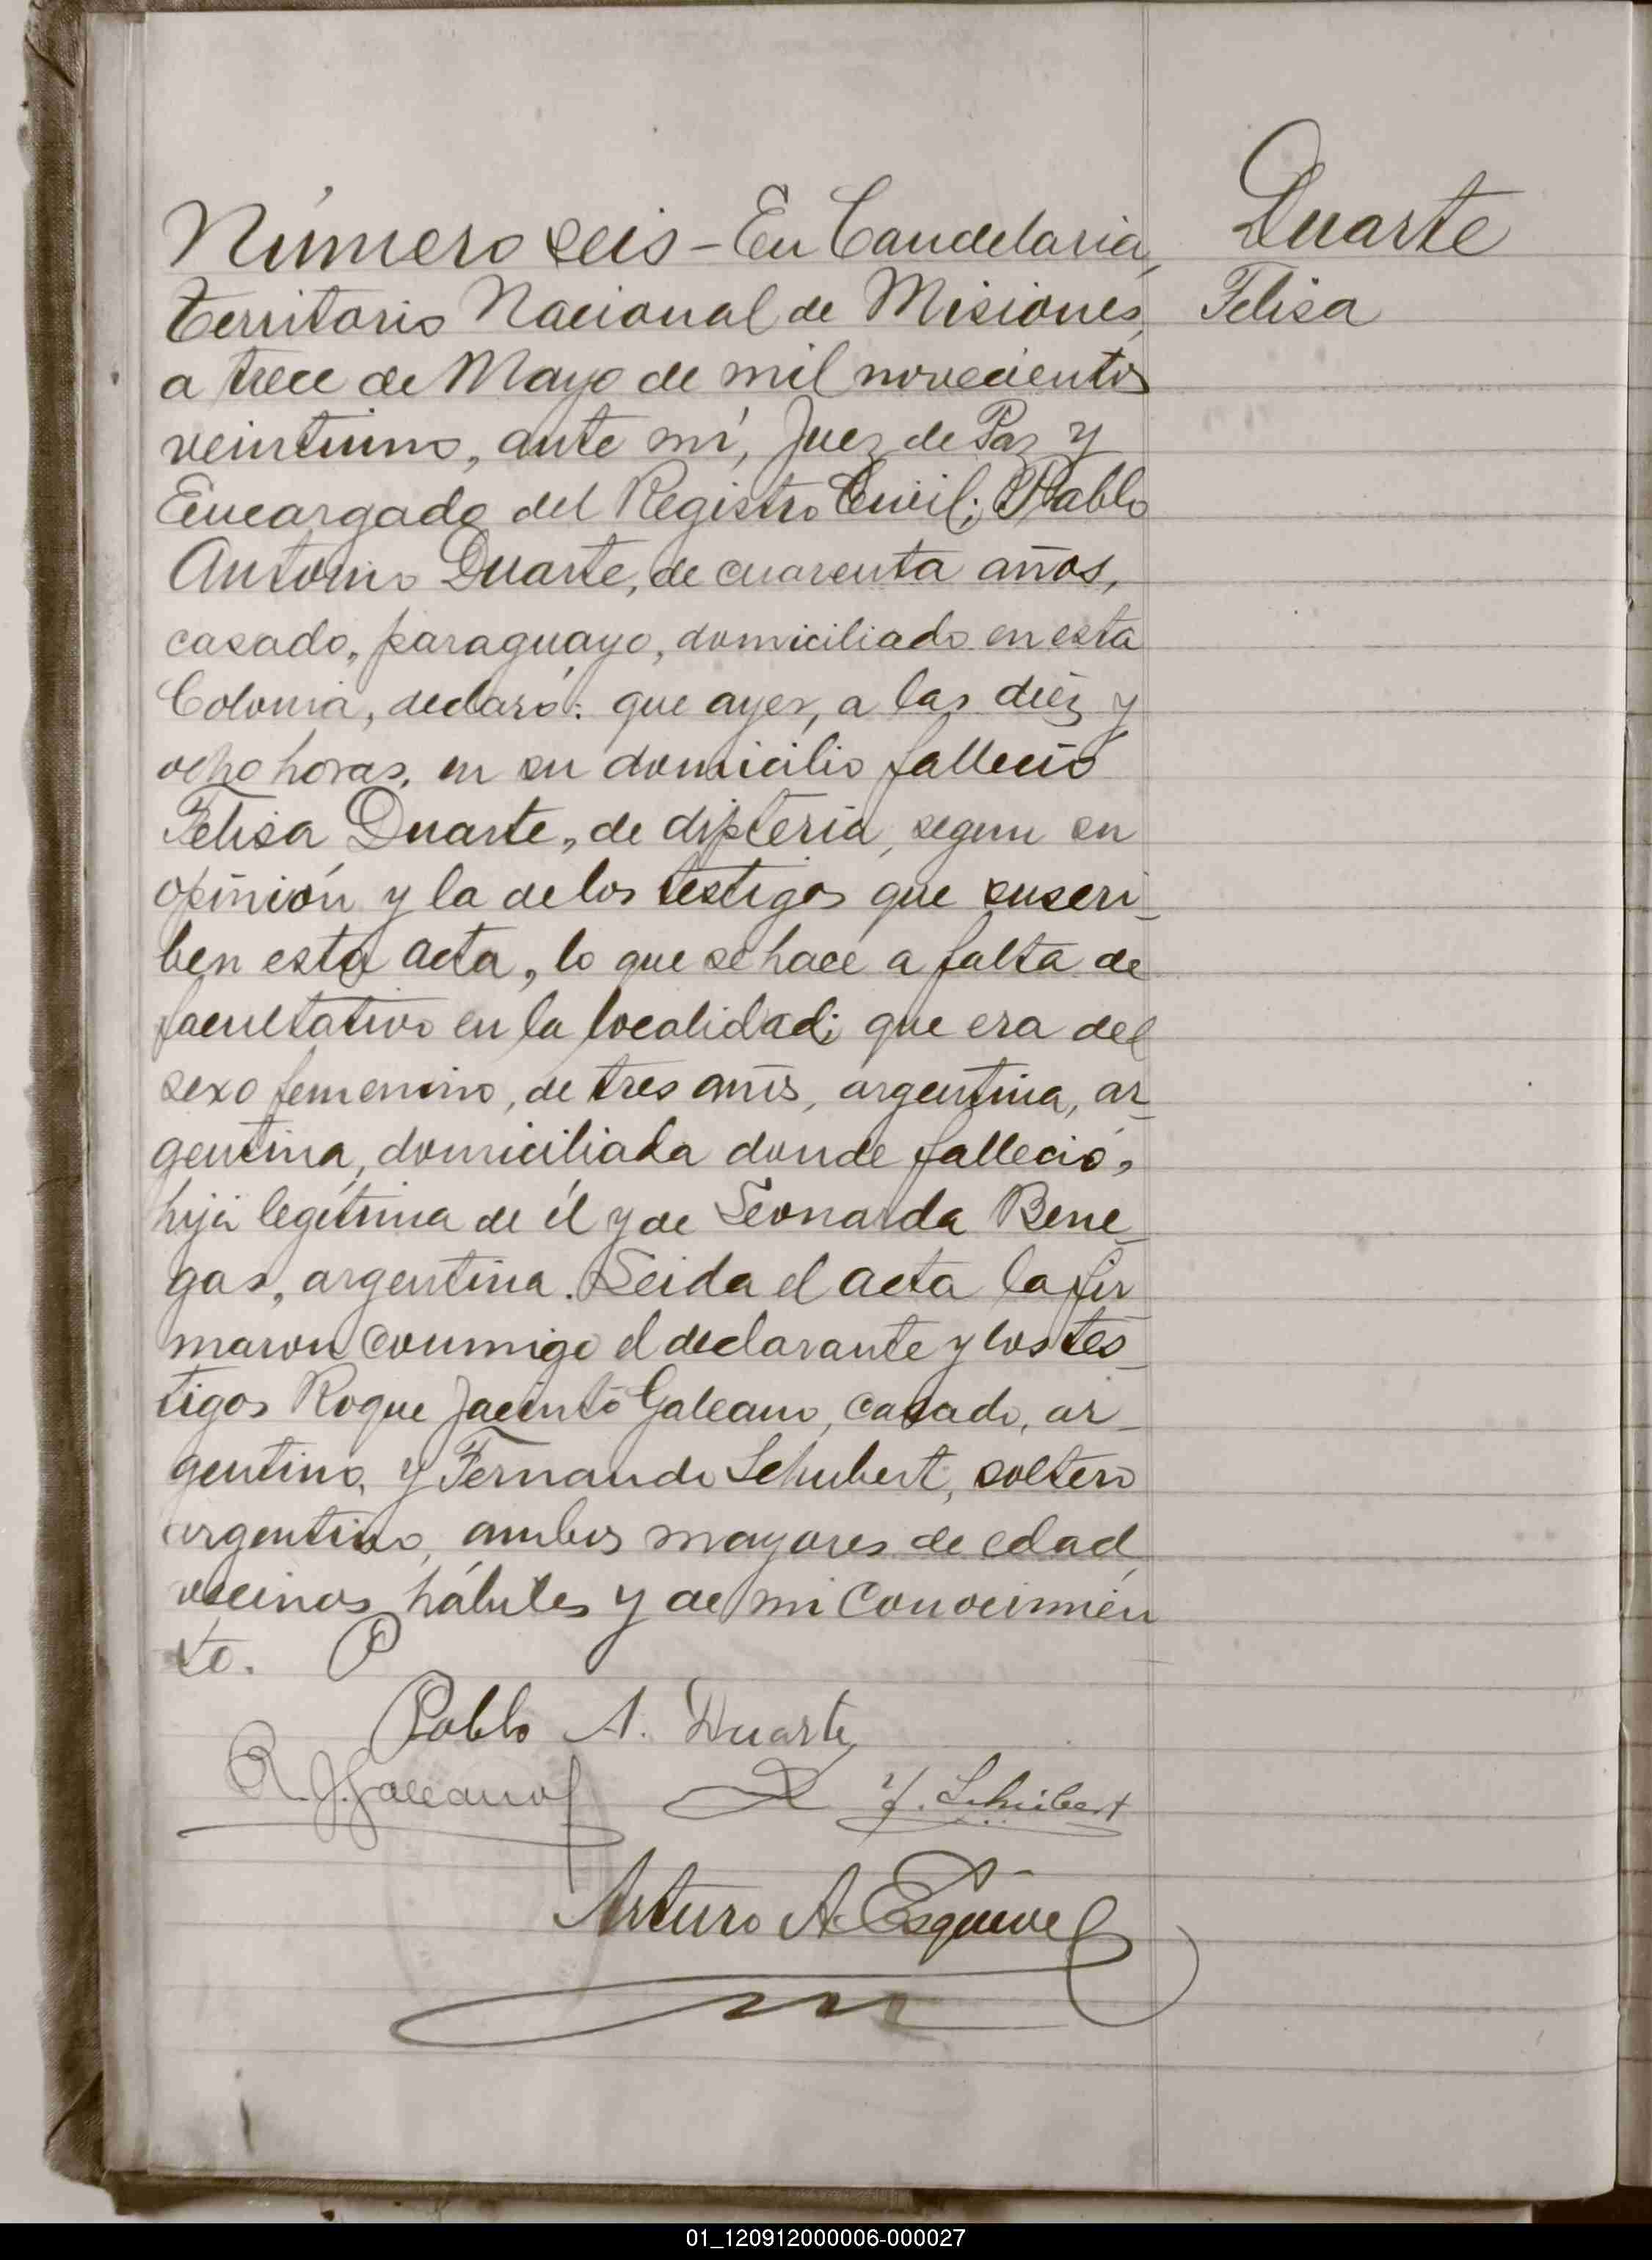 Número seis - En Candelaria,
Territorio Nacional de Misiones,
a trece de Mayo de mil novecientos
veintiuno, ante mí, Juez de Paz y
Encargado del Registro Civil; Pablo
Antonio Duarte, de cuarenta años,
casado, paraguayo, domiciliado en esta
Colonia, declaró: que ayer, a las diéz y
ocho horas, en su domicilio falleció
Felisa Duarte, de difteria, segun su
opinión y la de los testigos que suscri-
ben esta acta, lo que se hace a falta de
facultativo en la localidad; que era del
sexo femenino, de tres años, argentina, ar-
gentina, domiciliada donde falleció,
hija legítima de él y de Leonarda Bene-
gas, argentina. Leida el acta la fir
maron conmigo el declarante y los tes-
tigos Roque Jacinto Galeano, casado, ar-
gentino, y Fernando Schubert, soltero
argentino, ambos mayores de edad,
vecinos, hábiles y de mi conocimien
to. P
Pablo A. Duarte
R. J. Galeano F. Schubert
Arturo A. Esquivel
Duarte
Felisa
01_120912000006-000027